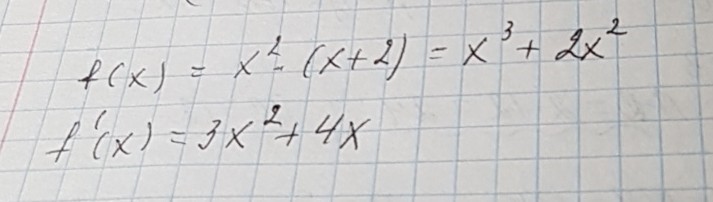 f(x) = x² · (x+2) = x³ + 2x²
f'(x) = 3x² + 4x